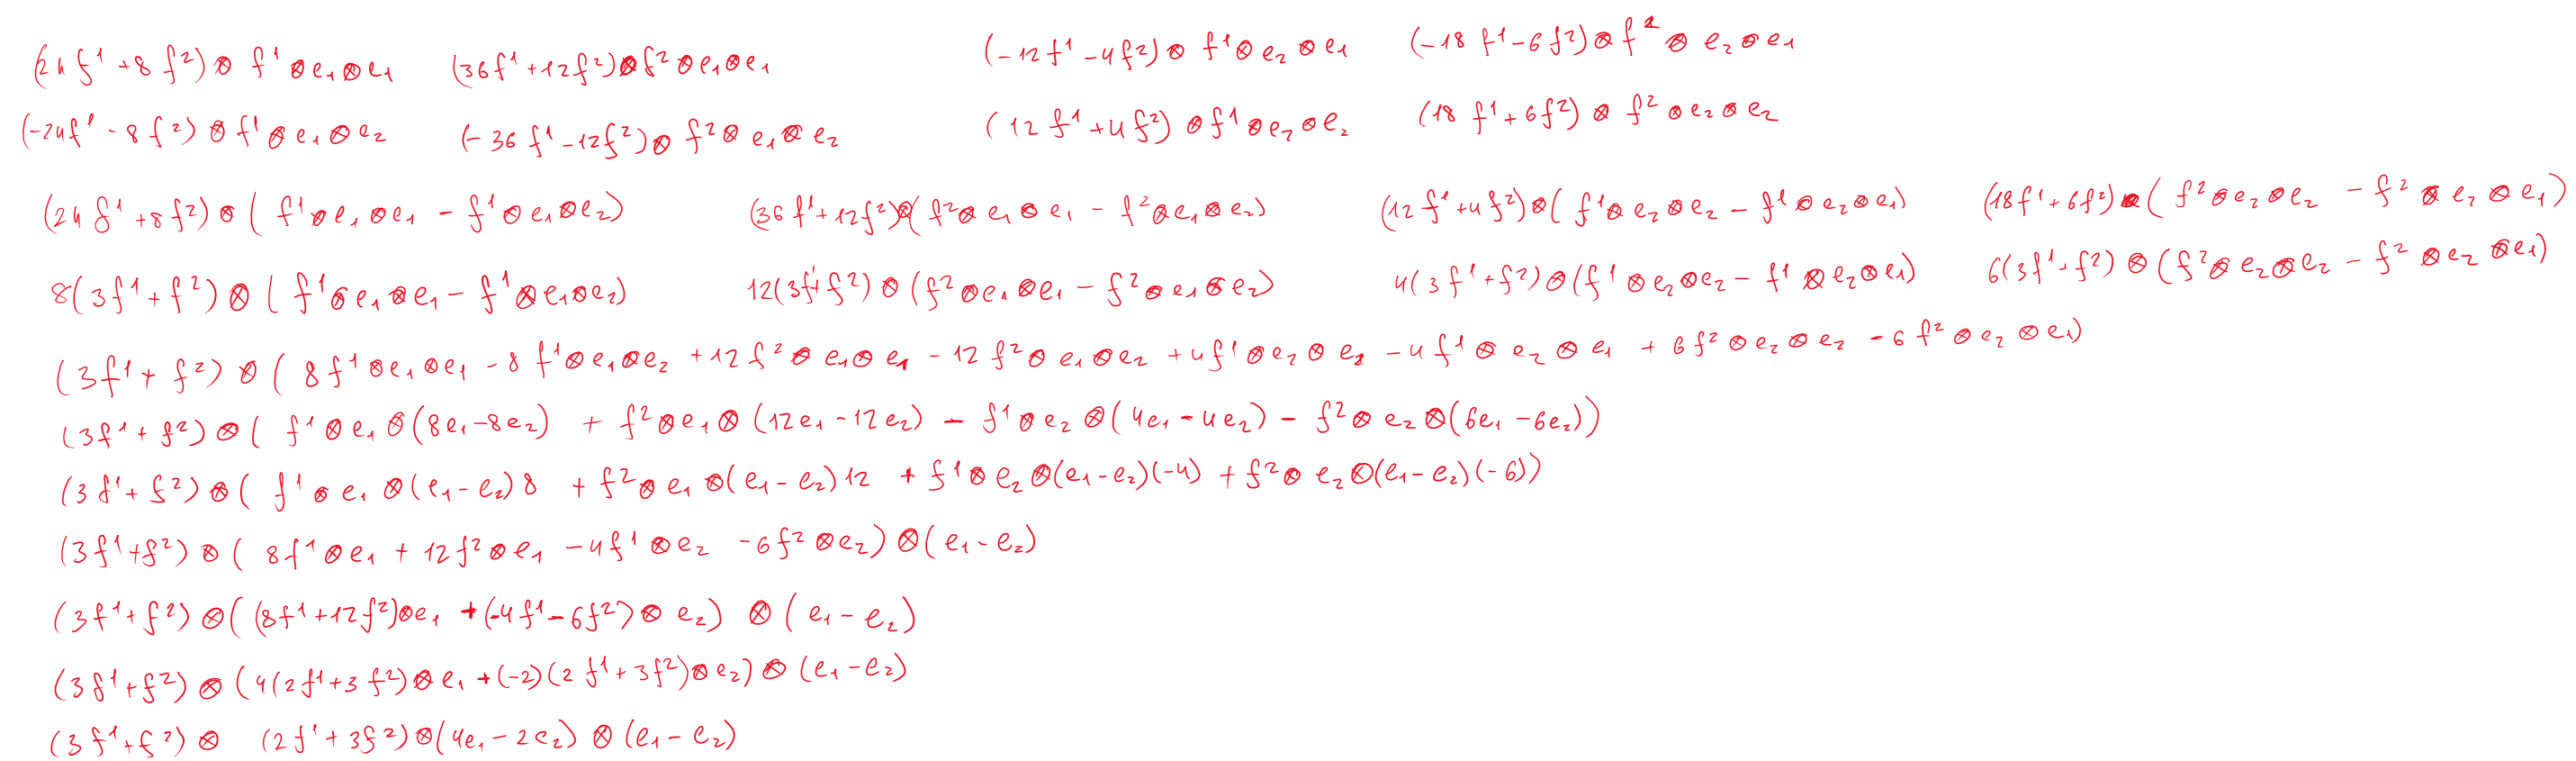 (24f¹+8f²)⊗f¹⊗e₁⊗e₁ (36f¹+12f²)⊗f²⊗e₁⊗e₁ (-12f¹-4f²)⊗f¹⊗e₂⊗e₁ (-18f¹-6f²)⊗f²⊗e₂⊗e₁
(-24f¹-8f²)⊗f¹⊗e₁⊗e₂ (-36f¹-12f²)⊗f²⊗e₁⊗e₂ (12f¹+4f²)⊗f¹⊗e₂⊗e₂ (18f¹+6f²)⊗f²⊗e₂⊗e₂
(24f¹+8f²)⊗(f¹⊗e₁⊗e₁-f¹⊗e₁⊗e₂) (36f¹+12f²)⊗(f²⊗e₁⊗e₁-f²⊗e₁⊗e₂) (12f¹+4f²)⊗(f¹⊗e₂⊗e₂-f¹⊗e₂⊗e₁) (18f¹+6f²)⊗(f²⊗e₂⊗e₂-f²⊗e₂⊗e₁)
8(3f¹+f²)⊗(f¹⊗e₁⊗e₁-f¹⊗e₁⊗e₂) 12(3f¹+f²)⊗(f²⊗e₁⊗e₁-f²⊗e₁⊗e₂) 4(3f¹+f²)⊗(f¹⊗e₂⊗e₂-f¹⊗e₂⊗e₁) 6(3f¹+f²)⊗(f²⊗e₂⊗e₂-f²⊗e₂⊗e₁)
(3f¹+f²)⊗(8f¹⊗e₁⊗e₁-8f¹⊗e₁⊗e₂+12f²⊗e₁⊗e₁-12f²⊗e₁⊗e₂+4f¹⊗e₂⊗e₂-4f¹⊗e₂⊗e₁+6f²⊗e₂⊗e₂-6f²⊗e₂⊗e₁)
(3f¹+f²)⊗(f¹⊗e₁⊗(8e₁-8e₂)+f²⊗e₁⊗(12e₁-12e₂)-f¹⊗e₂⊗(4e₁-4e₂)-f²⊗e₂⊗(6e₁-6e₂))
(3f¹+f²)⊗(f¹⊗e₁⊗(e₁-e₂)8+f²⊗e₁⊗(e₁-e₂)12+f¹⊗e₂⊗(e₁-e₂)(-4)+f²⊗e₂⊗(e₁-e₂)(-6))
(3f¹+f²)⊗(8f¹⊗e₁+12f²⊗e₁-4f¹⊗e₂-6f²⊗e₂)⊗(e₁-e₂)
(3f¹+f²)⊗((8f¹+12f²)⊗e₁+(-4f¹-6f²)⊗e₂)⊗(e₁-e₂)
(3f¹+f²)⊗(4(2f¹+3f²)⊗e₁+(-2)(2f¹+3f²)⊗e₂)⊗(e₁-e₂)
(3f¹+f²)⊗(2f¹+3f²)⊗(4e₁-2e₂)⊗(e₁-e₂)